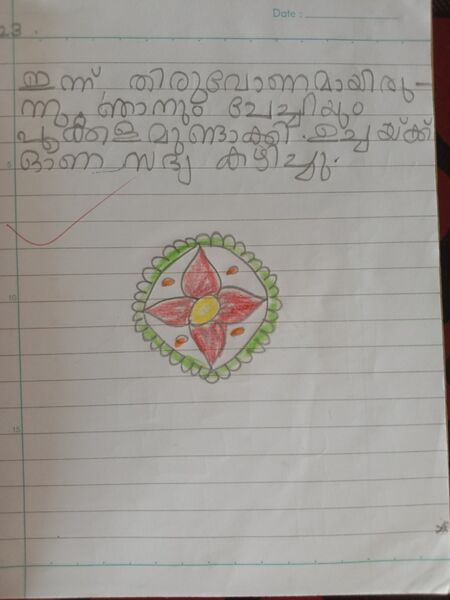 Date :
23.
ഇന്ന് തിരുവോണമായിരു-
ന്നു ഞാനും ചേച്ചിയും
പൂക്കളമുണ്ടാക്കി. ഉച്ചയ്ക്ക്
ഓണ സദ്യ കഴിച്ചു.
5
10
15